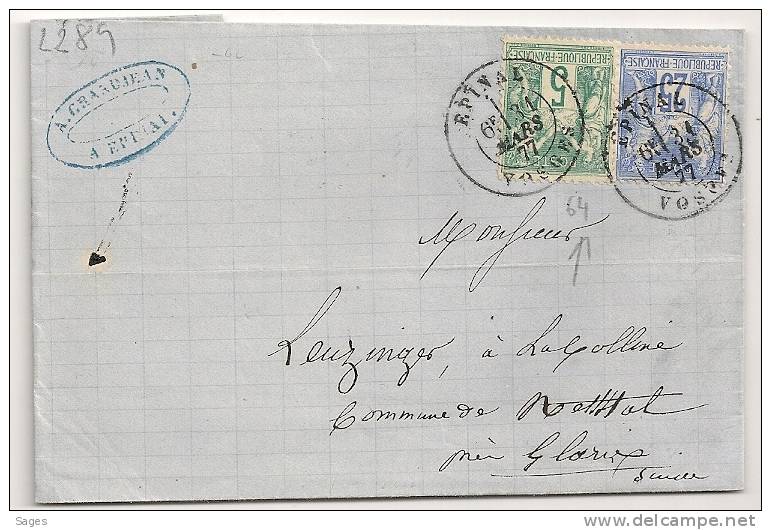 L289
A. GRANDJEAN
A EPINAL.
REPUBLIQUE FRANÇAISE
5
REPUBLIQUE FRANÇAISE
25
EPINAL
6E/ 31
MARS
77
VOSGES
EPINAL
6E/ 31
MARS
77
VOSGES
64
Monsieur
Leuzinger, à La Colline
Commune de Netstal
près Glaris
Suisse
Sages
delcampe.net